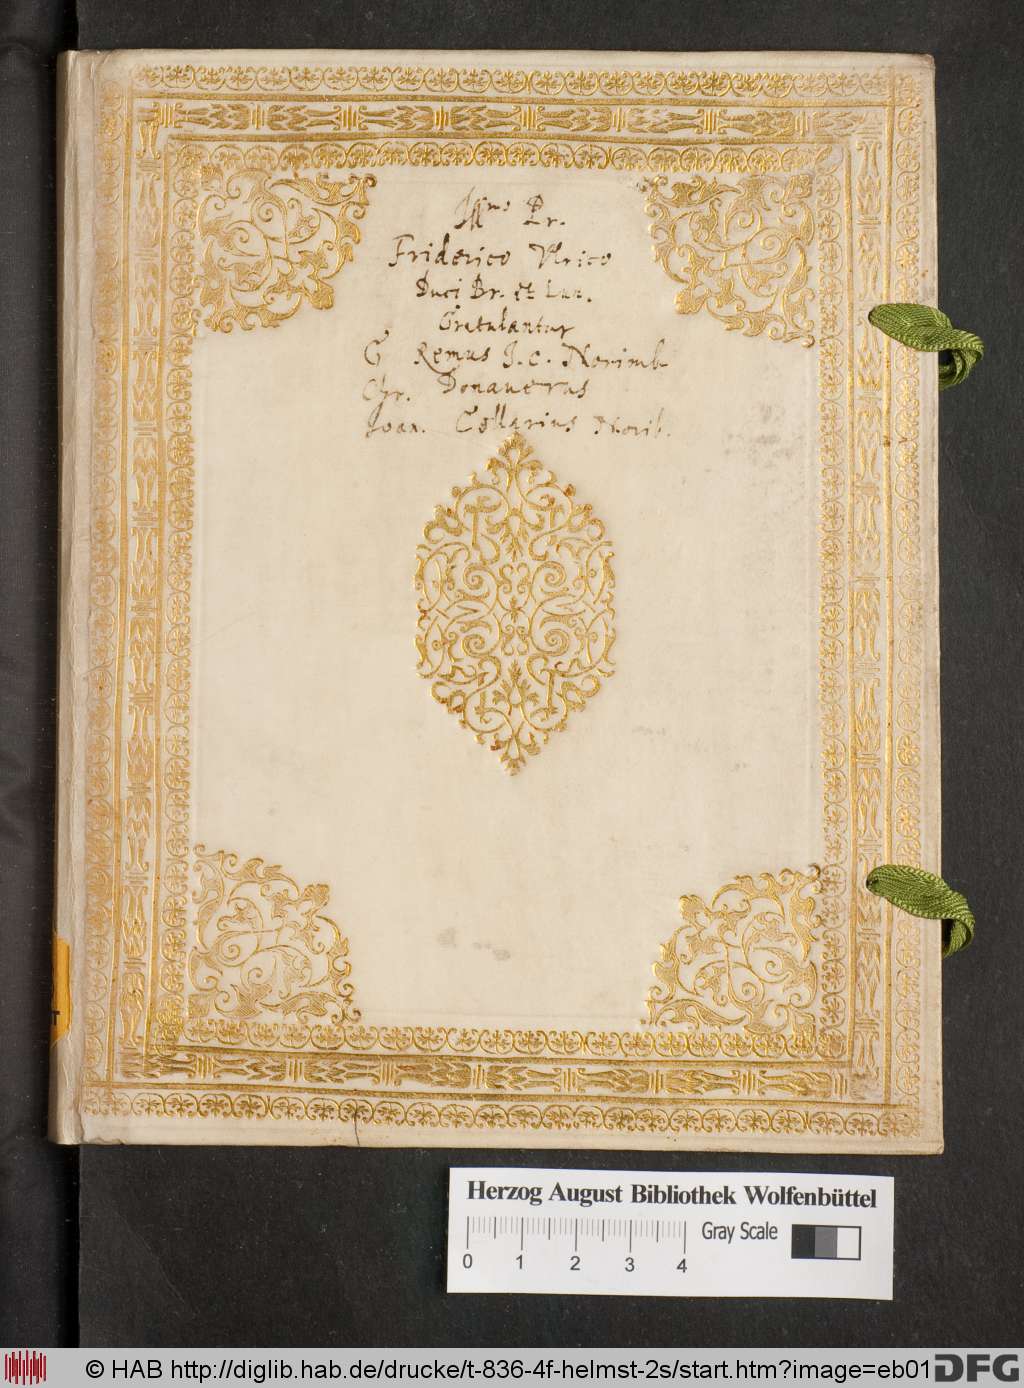 Illmo Pr.
Friderico Vlrico
Duci Br. et Lun.
Gratulantur
G Remus J.C. Norimb
Chr. Donauerus
Joan. Cellarius Norib.
T
Herzog August Bibliothek Wolfenbüttel
0 1 2 3 4
Gray Scale
© HAB http://diglib.hab.de/drucke/t-836-4f-helmst-2s/start.htm?image=eb01
DFG